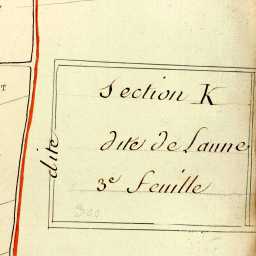 Section K
dite de Laune
3e feuille
dite